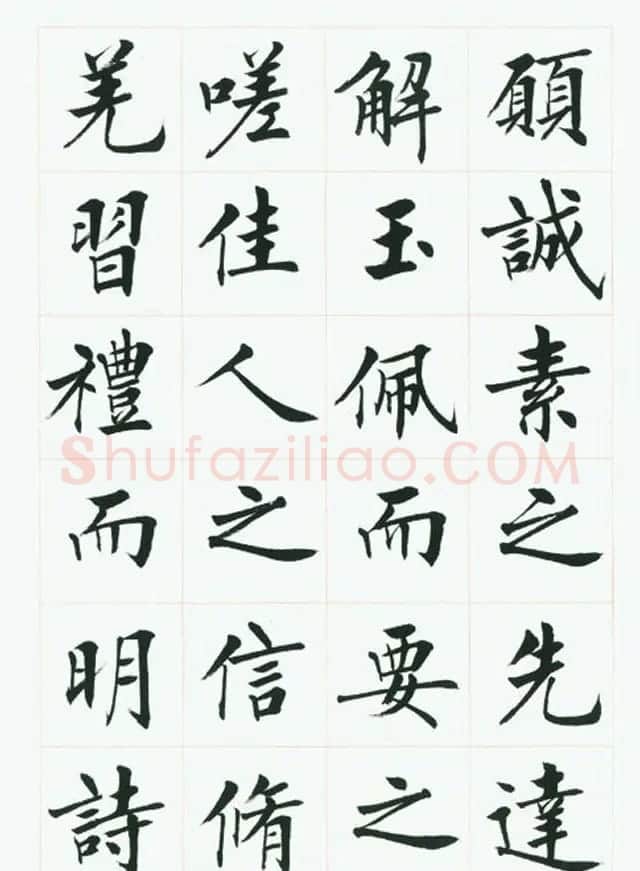 願誠素之先達
解玉佩而要之
嗟佳人之信脩
羌習禮而明詩
Shufaziliao.COM